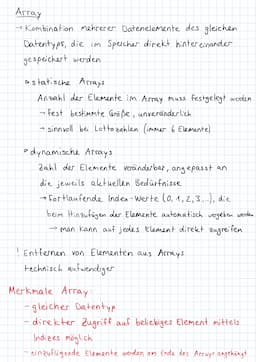 Array
→ Kombination mehrerer Datenelemente des gleichen
Datentyps, die im Speicher direkt hintereinander
gespeichert werden
• statische Arrays
Anzahl der Elemente im Array muss festgelegt werden
→ fest bestimmte Größe, unveränderlich
→ sinnvoll bei Lottozahlen (immer 6 Elemente)
• dynamische Arrays
Zahl der Elemente veränderbar, angepasst an
die jeweils aktuellen Bedürfnisse
→ Fortlaufende Index-Werte (0, 1, 2, 3...), die
beim Hinzufügen der Elemente automatisch vergeben werden
→ man kann auf jedes Element direkt zugreifen
! Entfernen von Elementen aus Arrays
technisch aufwendiger
Merkmale Array:
- gleicher Datentyp
- direkter Zugriff auf beliebiges Element mittels
Indizes möglich
- einzufügende Elemente werden am Ende des Arrays angehängt